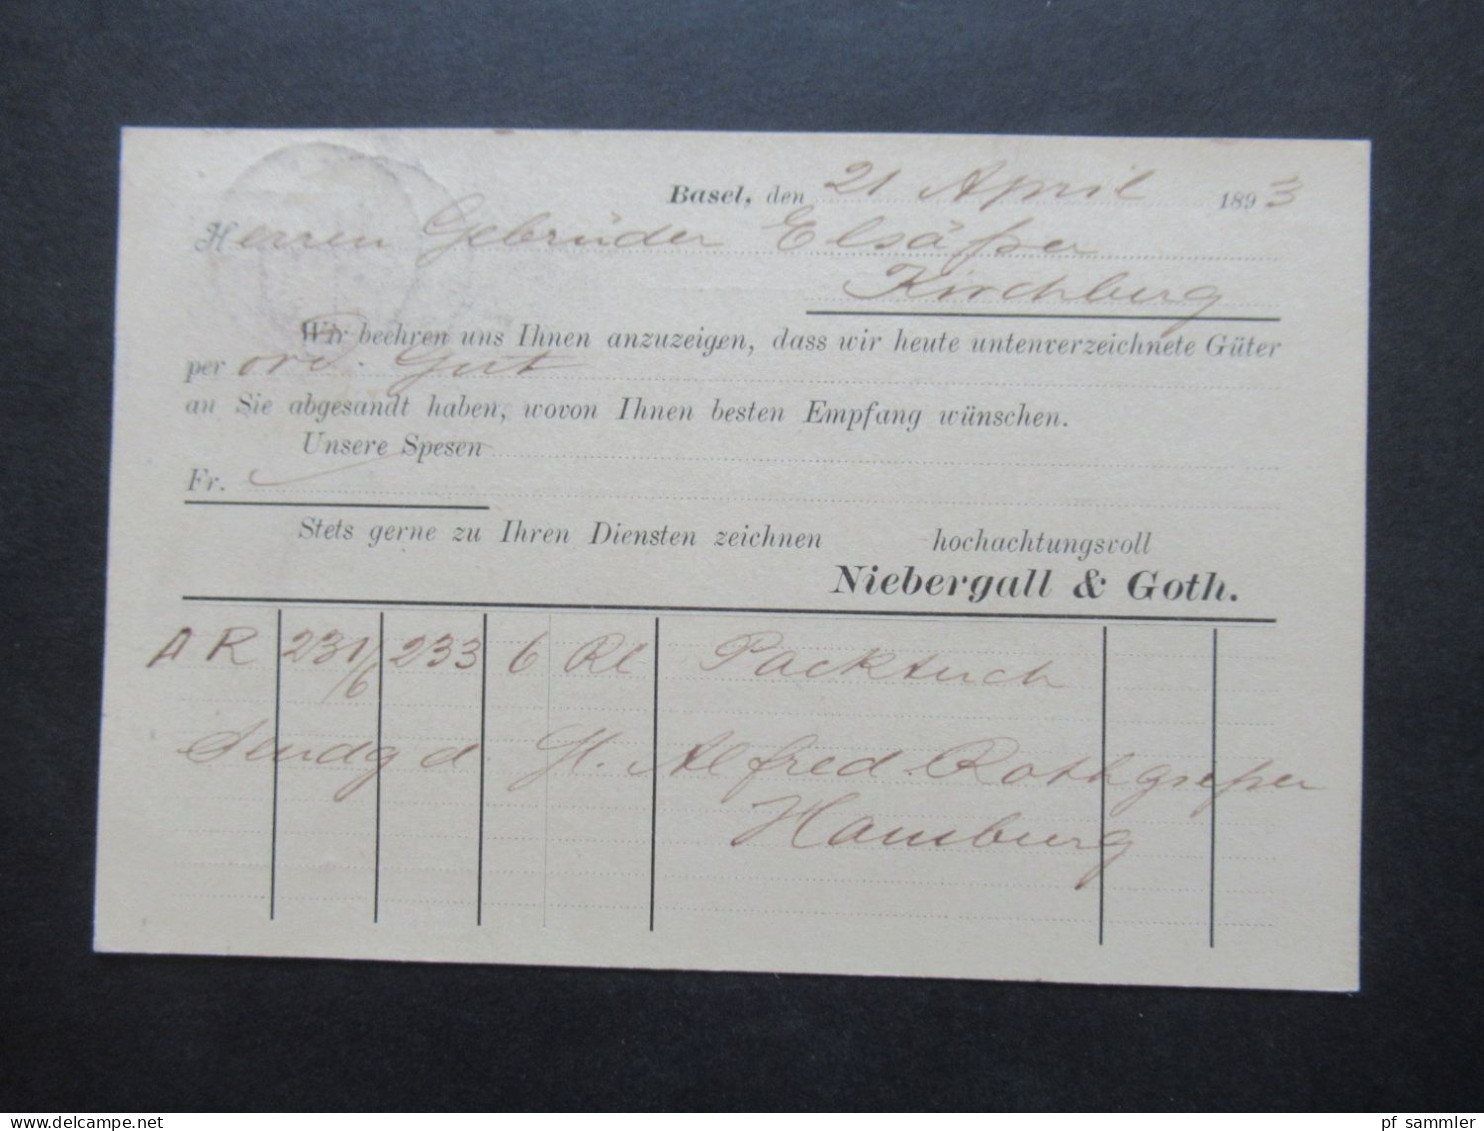 Basel, den 21 April 1893
Herren Gebrüder Elsäßer
Kirchberg
Wir beehren uns Ihnen anzuzeigen, dass wir heute untenverzeichnete Güter
per ord. Gut
an Sie abgesandt haben, wovon Ihnen besten Empfang wünschen.
Unsere Spesen
Fr.
Stets gerne zu Ihren Diensten zeichnen hochachtungsvoll
Niebergall & Goth.
A R 231/6 233 6 Bl Packtuch
Sendg d. H. Alfred Rothgießer
Hamburg
pf sammler